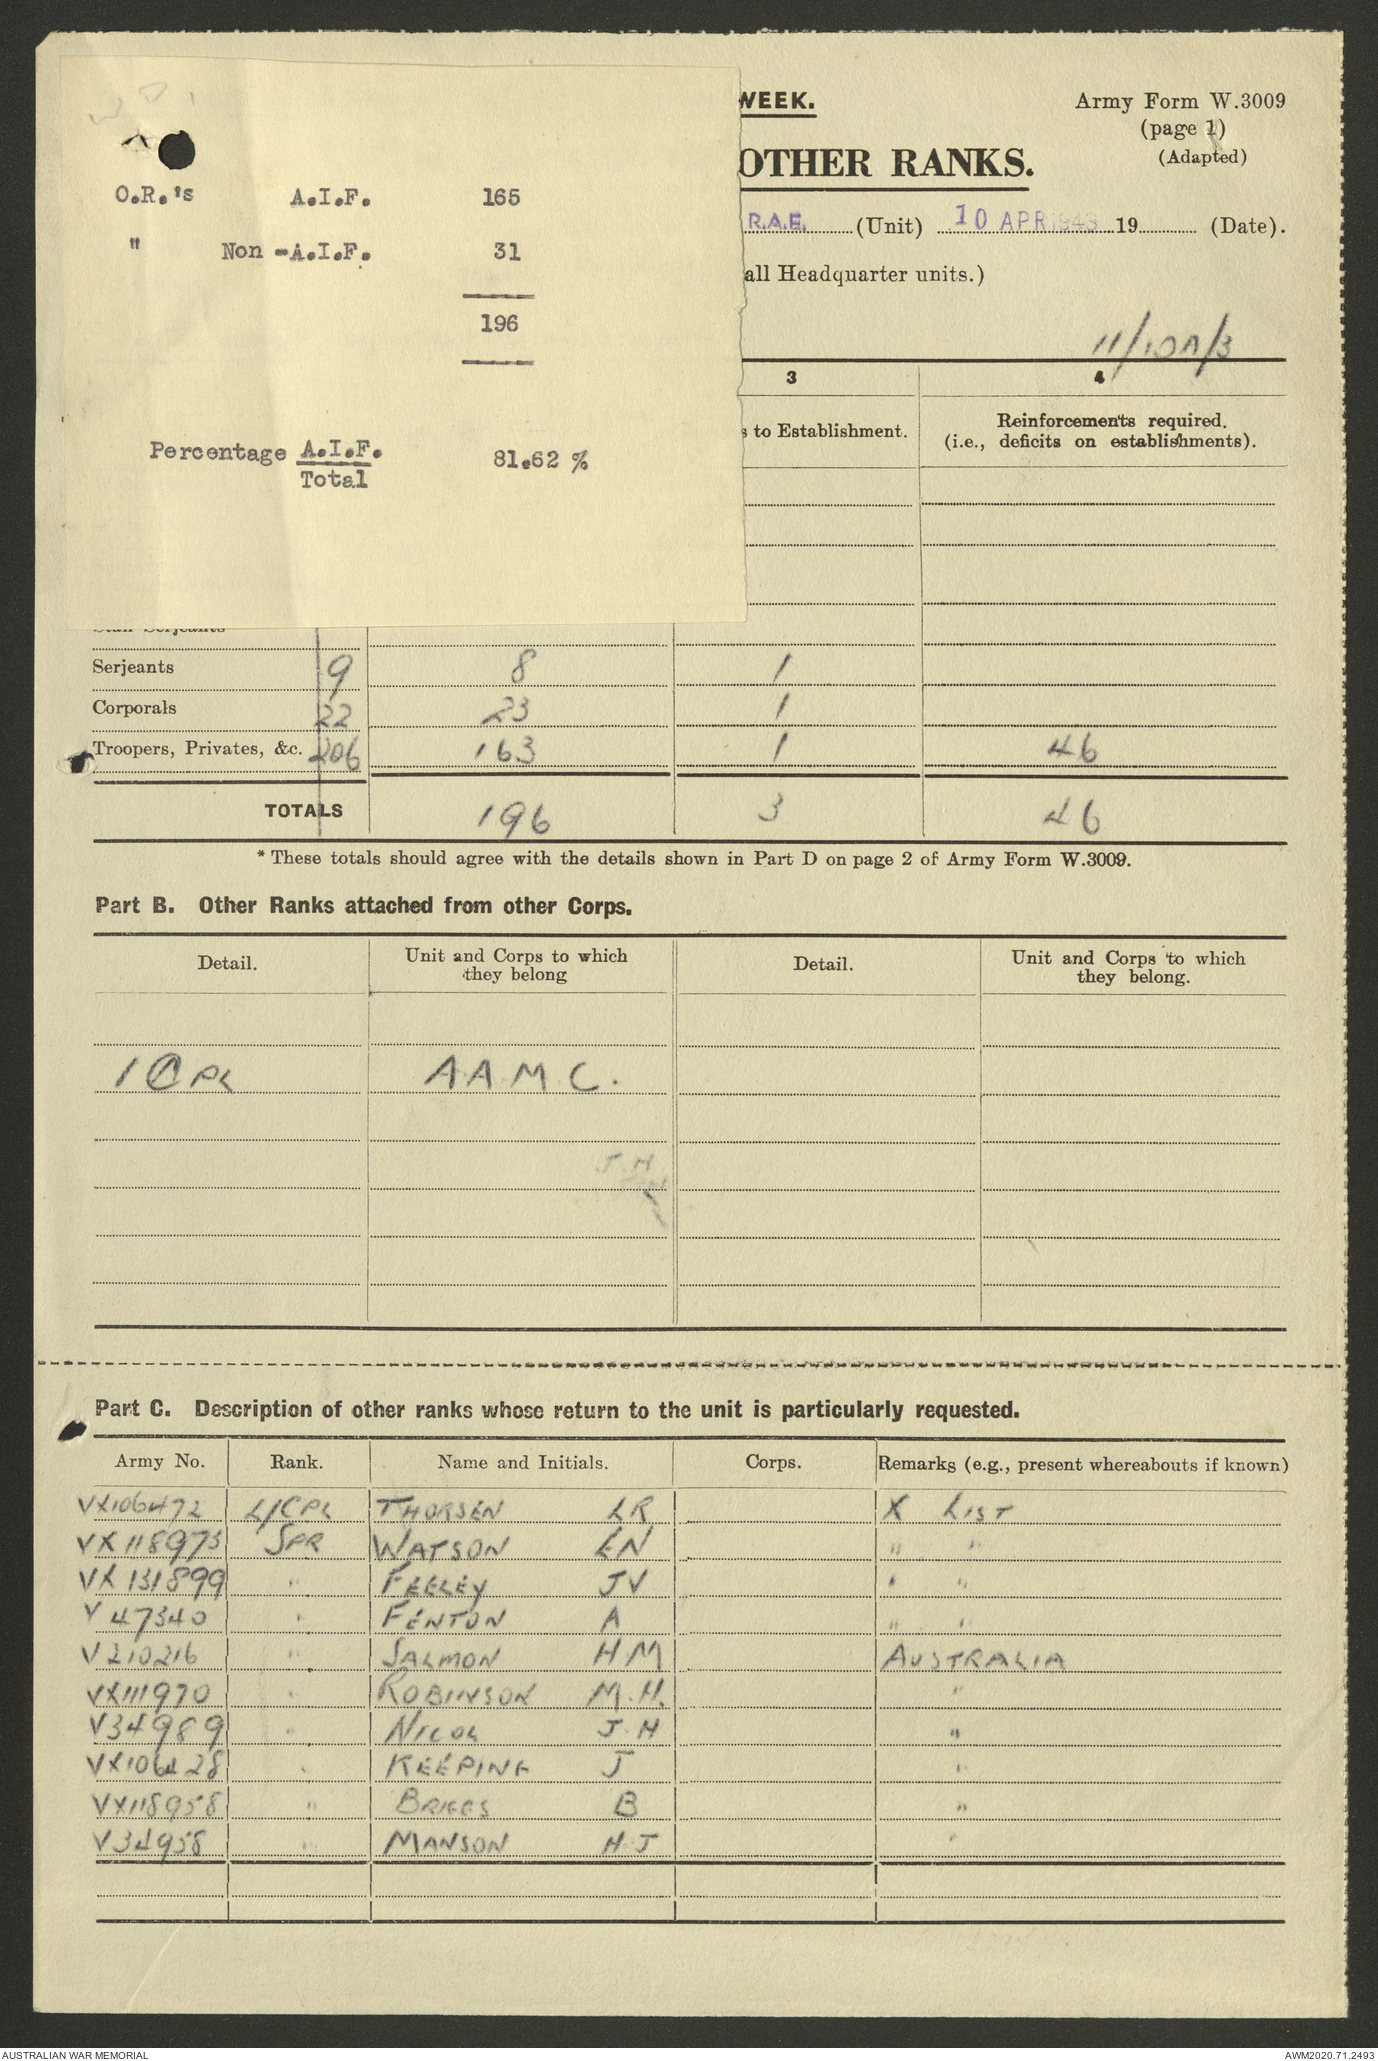 O.R.'s A.I.F. 165
" Non -A.I.F. 31
196
Percentage A.I.F. 81.62 %
Total
WEEK.
Army Form W.3009
(page 1)
(Adapted)
OTHER RANKS.
R.A.E. (Unit) 10 APR 1943 19 (Date).
all Headquarter units.)
11/10A/3
3 4
s to Establishment. Reinforcements required.
(i.e., deficits on establishments).
Serjeants 9 8 1
Corporals 22 23 1
Troopers, Privates, &c. 206 163 1 46
TOTALS 196 3 46
* These totals should agree with the details shown in Part D on page 2 of Army Form W.3009.
Part B. Other Ranks attached from other Corps.
Detail. Unit and Corps to which they belong Detail. Unit and Corps to which they belong.
1 Cpl A.A.M.C.
J.H
Part C. Description of other ranks whose return to the unit is particularly requested.
Army No. Rank. Name and Initials. Corps. Remarks (e.g., present whereabouts if known)
VX106472 L/CPL THORSEN LR X LIST
VX118973 SPR WATSON EN " "
VX131899 " FEELEY JV " "
V47340 " FENTON A " "
V210216 " SALMON HM AUSTRALIA
VX111970 " ROBINSON M.H. "
V34989 " NICOL J.H "
VX106428 " KEEPING J "
VX118958 " BRIGGS B "
V34958 " MANSON H.J "
AUSTRALIAN WAR MEMORIAL AWM2020.71.2493